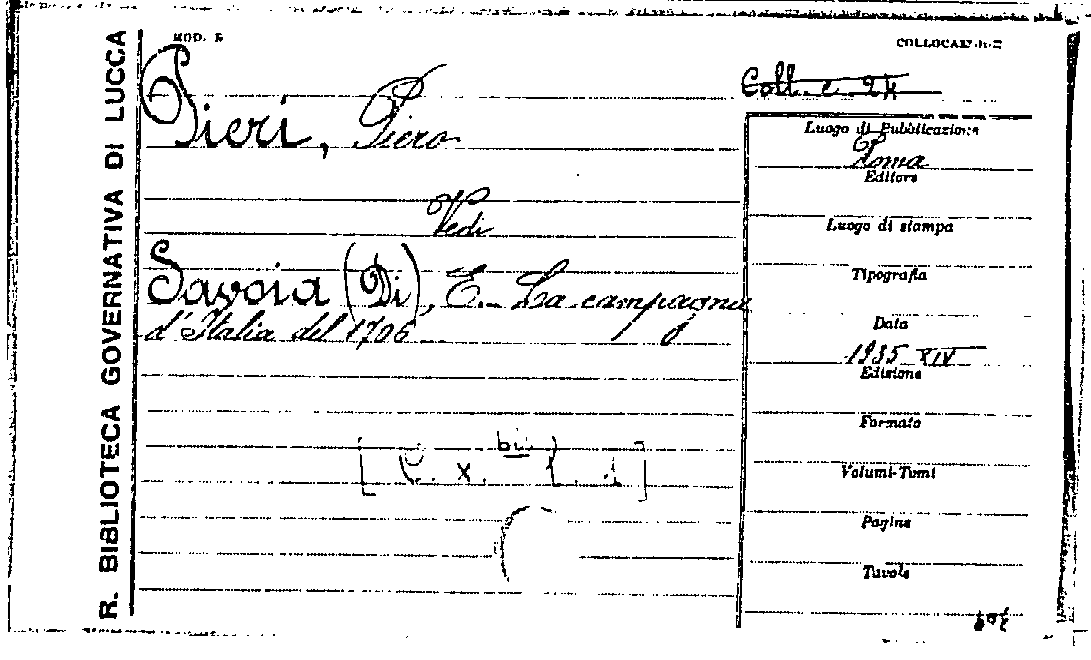 R. BIBLIOTECA GOVERNATIVA DI LUCCA
MOD.
COLLOCAZIONE
Coll. c. 24
Pieri, Piero
Vedi
Savoia (Di), E. La campagna
d'Italia del 1706
Luogo di Pubblicazione
Roma
Editore
Luogo di stampa
Tipografia
Data
1935 XIV
Edizione
Formato
Volumi-Tomi
Pagine
Tavole